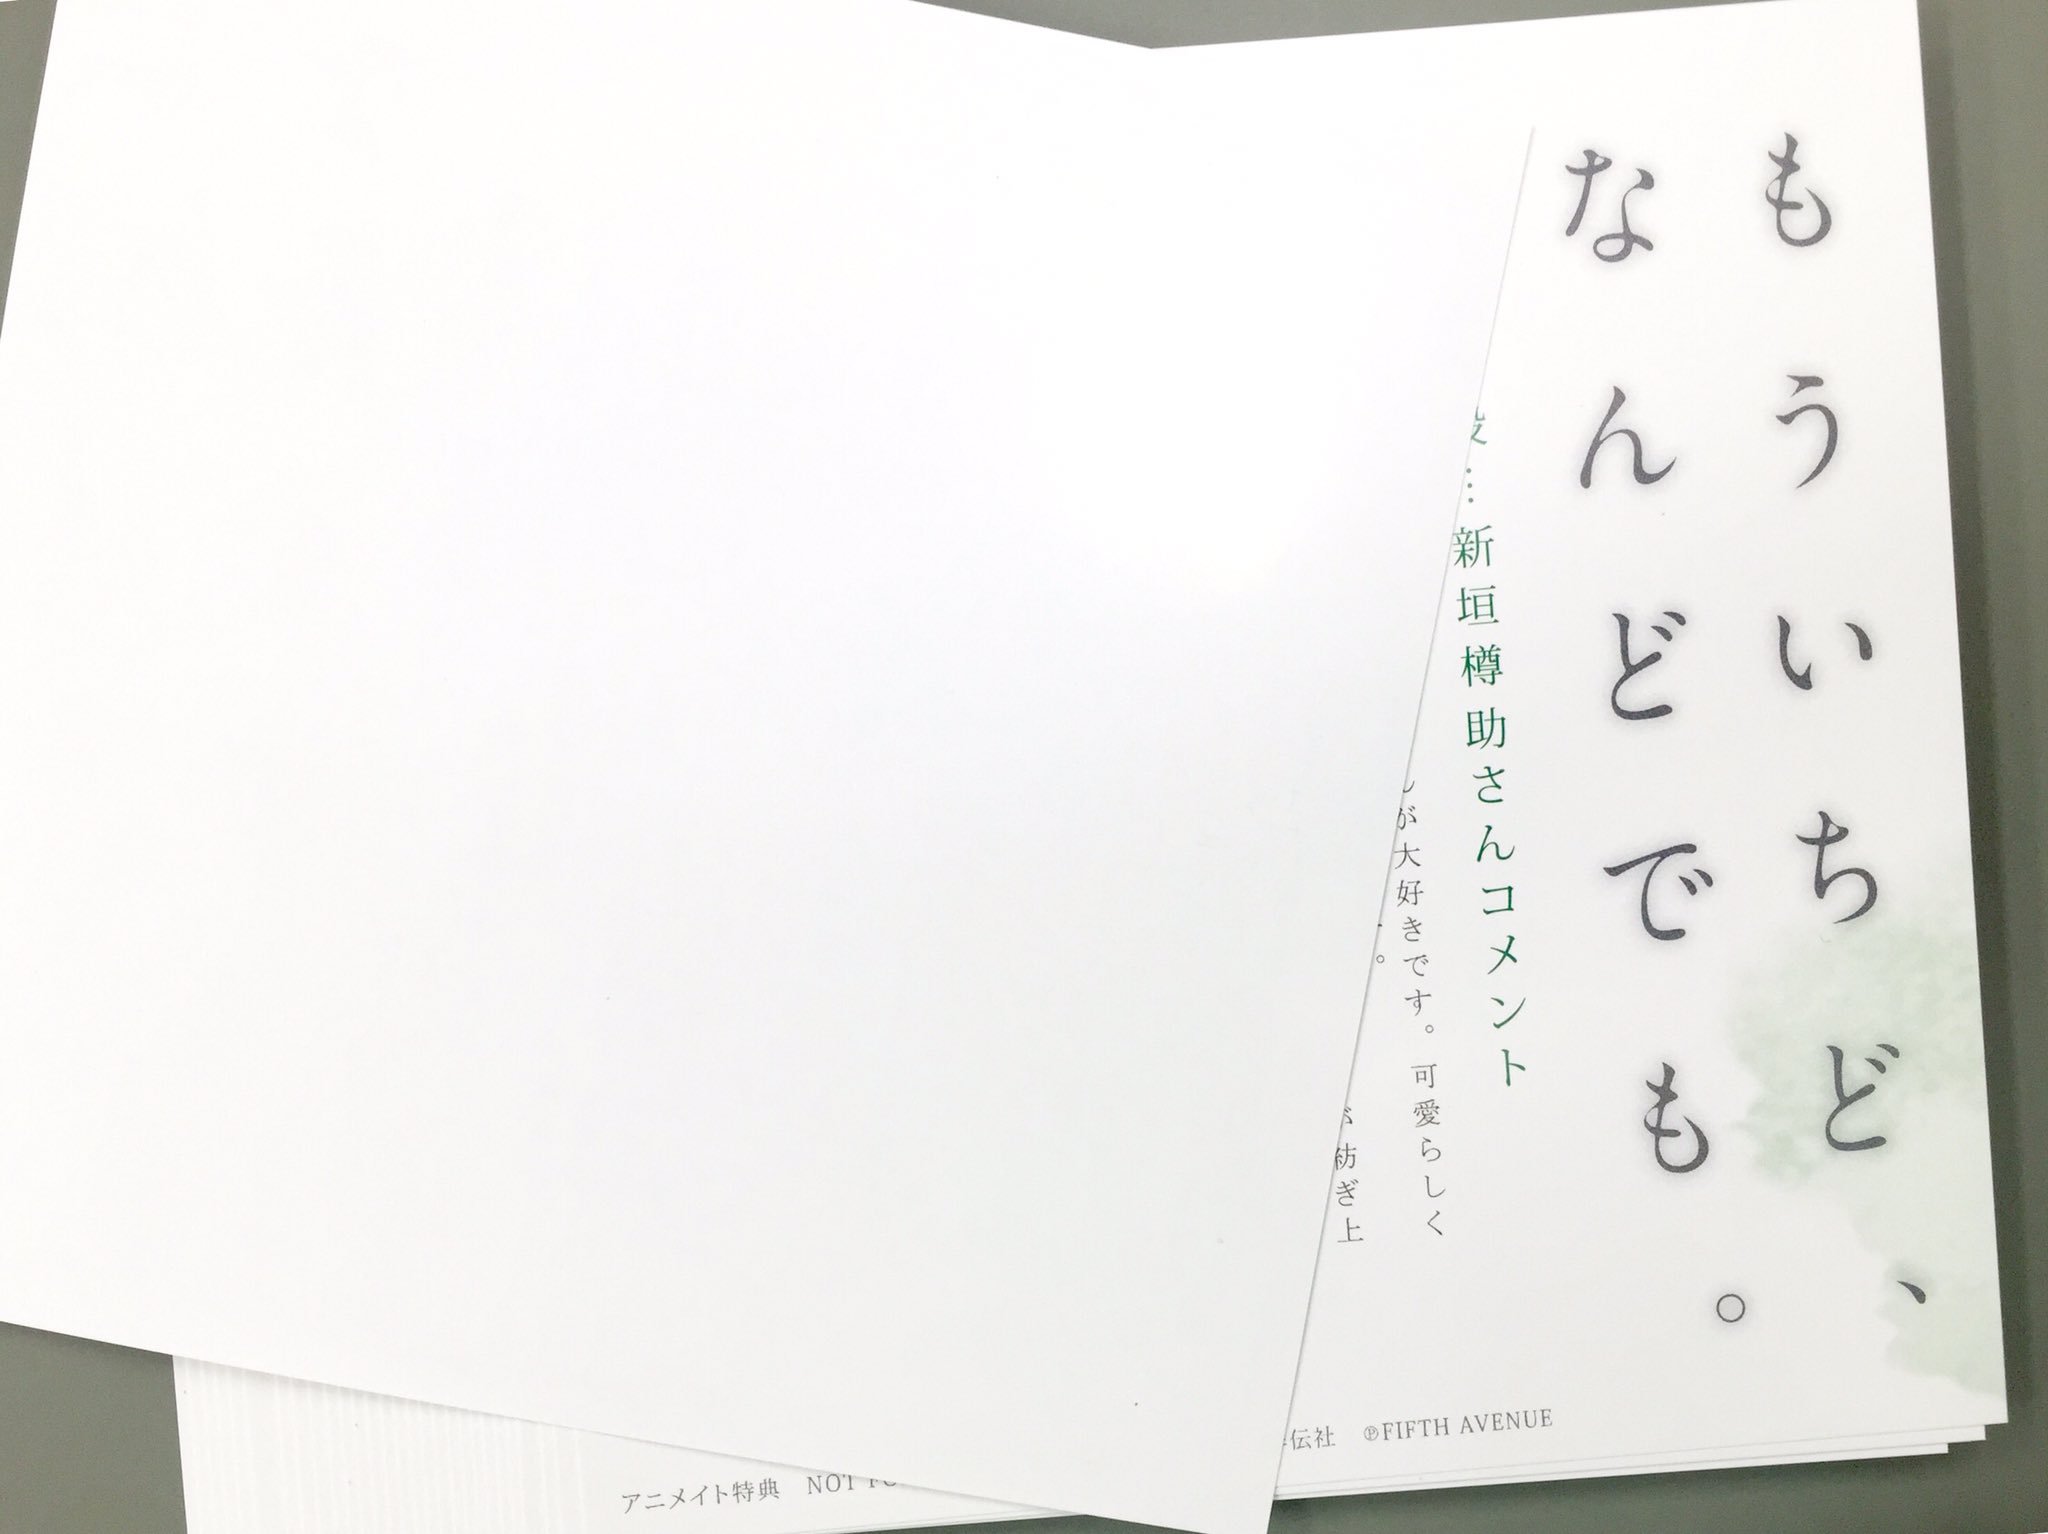 もういちど、
なんどでも。
…新垣樽助さんコメント
が大好きです。可愛らしく
紡ぎ上
伝社 ℗FIFTH AVENUE
アニメイト特典 NOT